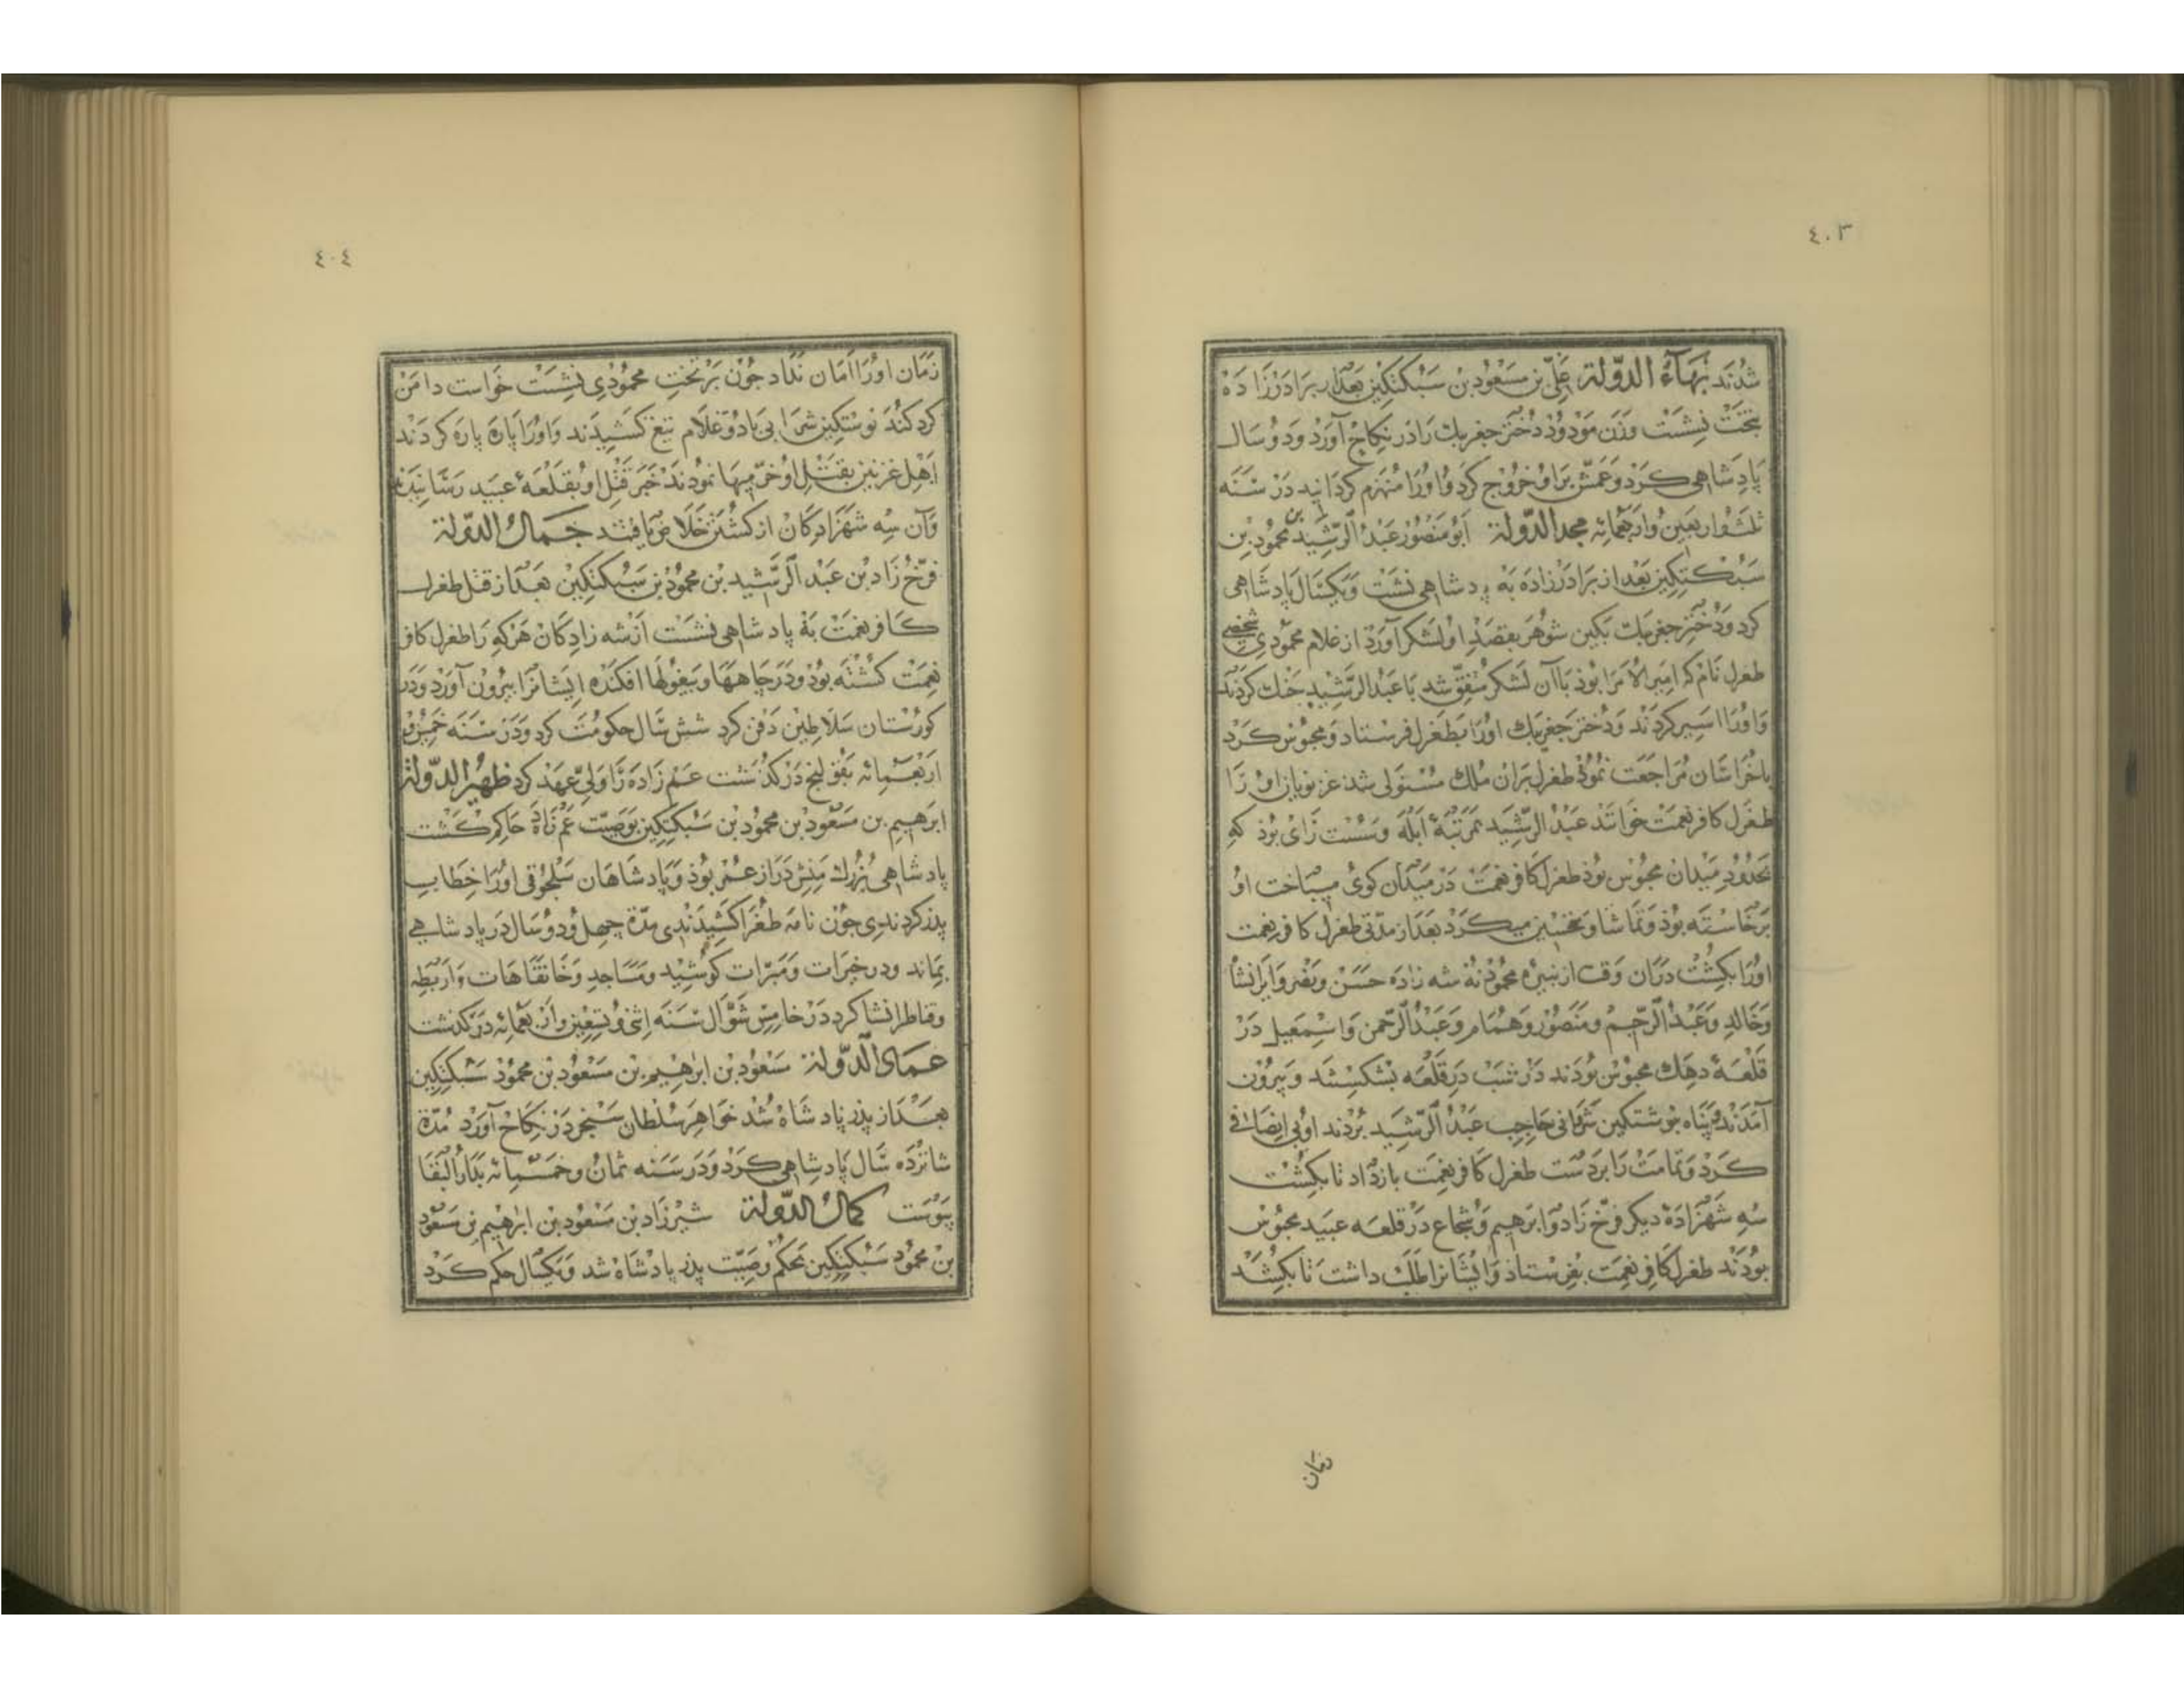 ٤٠٣
شدند بهاء الدولة علی بن مسعود بن سبکتکین بعد از برادرزاده
بتخت نشست و زن مودود دختر جغربک را در نکاح آورد و دو سال
پادشاهی کرد و عمش براو خروج کرد و اورا منهزم کردانید در سنه
ثلث و اربعین و اربعمائه مجد الدولة ابو منصور عبد الرشید بن محمود بن
سبکتکین بعد از برادرزاده به پادشاهی نشست و یکسال پادشاهی
کرد و دختر جغربک بکین شوهر بقصد او لشکر آورد از غلام محمودی شخصی
طغرل نام که امیر الامرا بوذ باآن لشکر متفق شد با عبد الرشید جنک کردند
و اورا اسیر کردند و دختر جغربک اورا بطغرل فرستاد و محبوس کرد
باخراسان مراجعت نموذ طغرل بران ملک مستولی شد غزنویان اورا
طغرل کافر نعمت خواندند عبد الرشید بمرتبهٔ ابله و سست رای بوذ که
بحدود میدان محبوس بوذ طغرل کافر نعمت در میدان کوی میباخت او
برخاسته بوذ و تماشا و تحسین میکرد بعد از مدتی طغرل کافر نعمت
اورا بکشت دران وقت از نبیرهٔ محمود نه شه زاده حسن و نصر و ایرانشا
و خالد و عبد الرحیم و منصور و همام و عبد الرحمن و اسمعیل در
قلعهٔ دهک محبوس بودند در شب در قلعه بشکستند و بیرون
آمدند و پناه بنوشتکین شرابی حاجب عبد الرشید بردند او بی انصافی
کرد و تمامت را بردست طغرل کافر نعمت بازداد تا بکشت
سه شهزادهٔ دیکر فرخ زاد و ابرهیم و شجاع در قلعه عبید محبوس
بودند طغرل کافر نعمت بفرستاد و ایشانرا طلب داشت تا بکشد
زمان
٤٠٤
زمان اورا امان نداد جون بر تخت محمودی نشست خواست دامن
کرد کند نوشتکین شرابی بادو غلام تیغ کشیدند و اورا پاره پاره کردند
اهل غزنین بقتل او خرمیها نمودند خبر قتل او بقلعهٔ عبید رسانیدند
و آن سه شهزادکان از کشتن خلاص یافتند جمال الدولة
فرخ زاد بن عبد الرشید بن محمود بن سبکتکین بعد از قتل طغرل
کافر نعمت به پادشاهی نشست از شه زادکان هرکه را طغرل کافر
نعمت کشته بود و در جاهها و بیغولها افکنده ایشانرا بیرون آورد و در
کورستان سلاطین دفن کرد شش سال حکومت کرد و در سنه خمسین و
اربعمائه بقولنج درکذشت عم زاده را ولی عهد کرد ظهیر الدولة
ابرهیم بن مسعود بن محمود بن سبکتکین بوصیت عم زاده حاکم کشت
پادشاهی بزرک منش دراز عمر بوذ و پادشاهان سلجوقی اورا خطاب
پدر کردندی جون نامه طغرا کشیدندی مدة جهل و دو سال در پادشاهی
بماند و در خیرات و مبرات کوشید و مساجد و خانقاهات و اربطه
و قناطر انشا کرد در خامس شوال سنه اثنی و تسعین و اربعمائه درکذشت
عماد الدولة مسعود بن ابرهیم بن مسعود بن محمود سبکتکین
بعد از پدر پادشاه شد خواهر سلطان سنجر در نکاح آورد مدة
شانزده سال پادشاهی کرد و در سنه ثمان و خمسمائه بدار البقا
پیوست کمال الدولة شیرزاد بن مسعود بن ابرهیم بن مسعود
بن محمود سبکتکین بحکم وصیت پدر پادشاه شد و یکسال حکم کرد